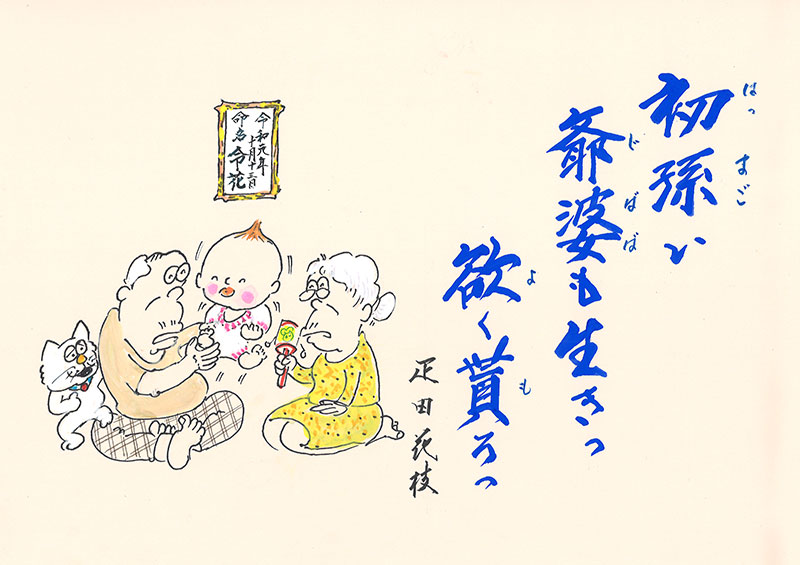 はっ まご
初孫い
じばば
爺婆も生きっ
よ も
欲く貰ろっ
疋田花枝
令和元年
十月十二日
命名 令花